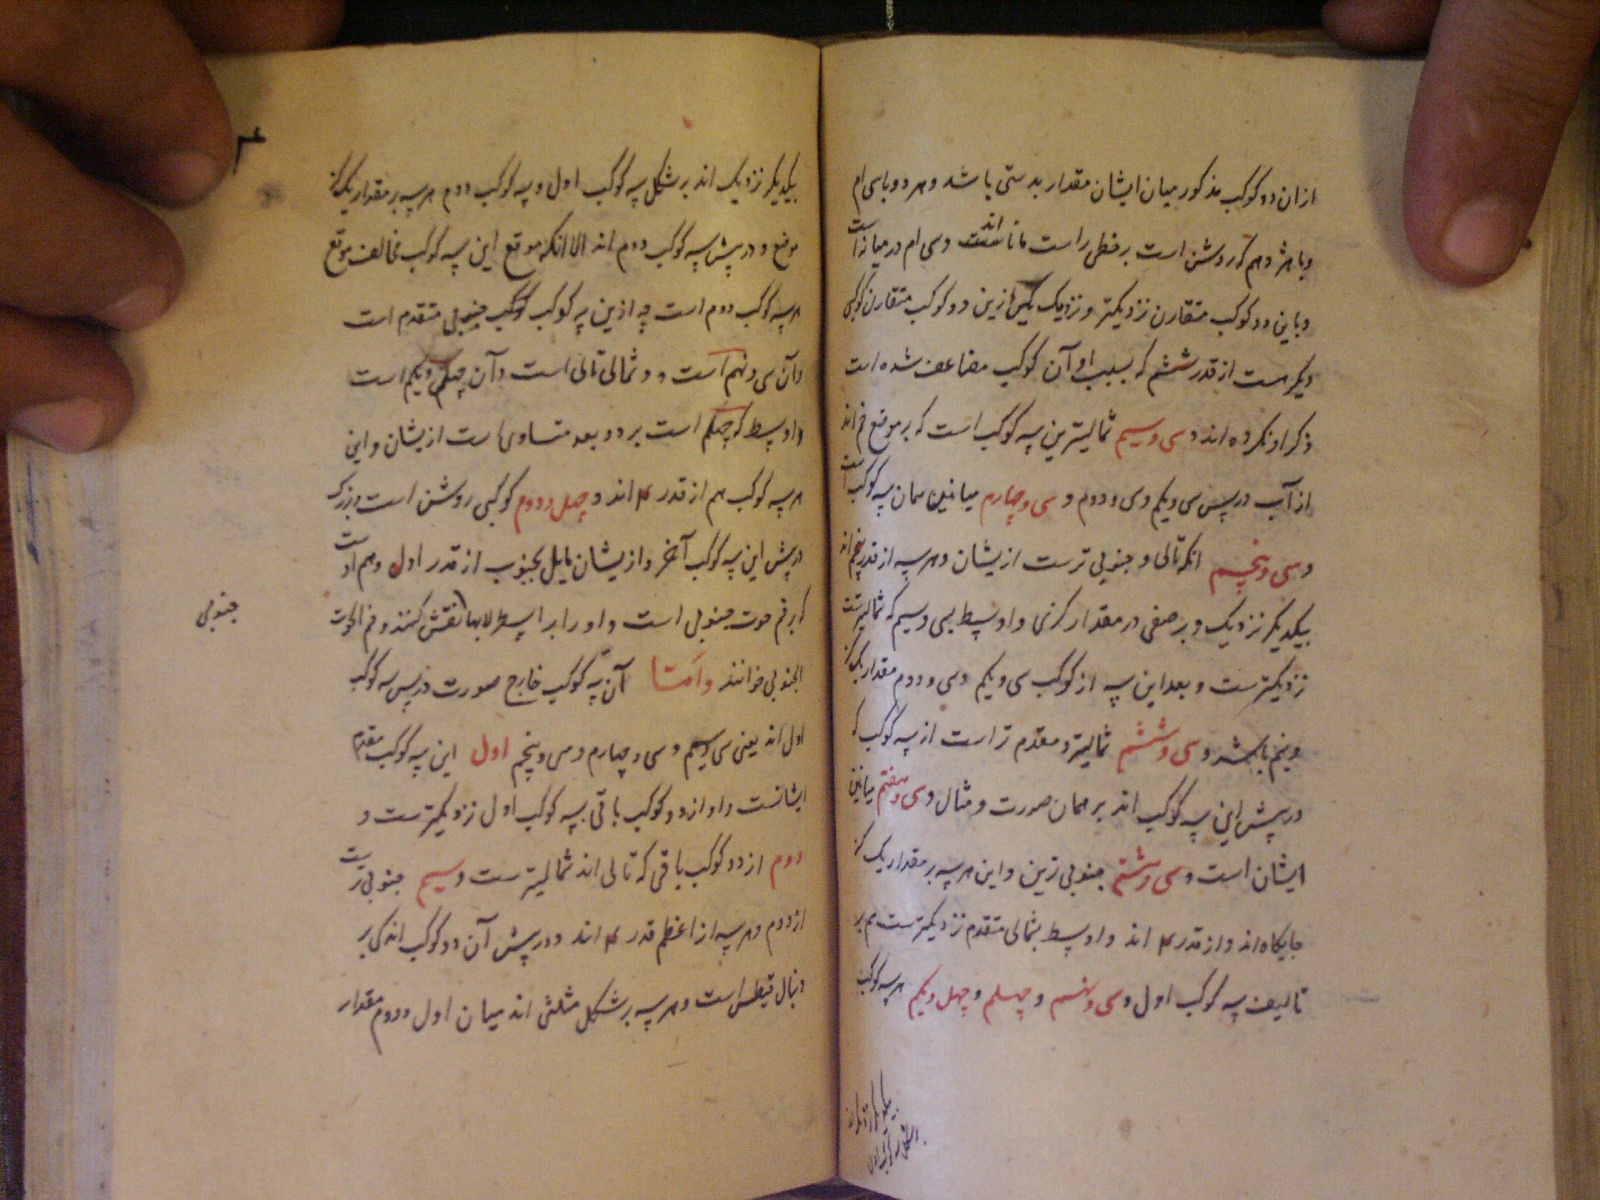 ازان دو کوکب مذکور میان ایشان مقدار بدستی باشد و هر دو با سی ام
و با هژدهم که روشن است بر خطی راست مانند است و سی ام در میانه است
و باین دو کوکب متقارن نزدیکتر و نزدیک یکی ازین دو کوکب متقارن کوکبی
دیگر هست از قدر ششم که بسبب او آن کوکب مضاعف شده است
ذکر او نکرده اند و سی و سیم شمالیترین سه کوکب است که بر موضع خم اند
از آب در پس سی و یکم و سی و دوم و سی و چهارم میانین همان سه کوکب است
و سی و پنجم انکه تالی و جنوبی ترست ازیشان و هر سه از قدر پنجم اند
بیکدیگر نزدیک و بر صفی در مقدار گزی و اوسط بسی و سیم که شمالیست
نزدیکترست و بعد این سه از کوکب سی و یکم و سی و دوم مقدار یک گز
و نیم باشد و سی و ششم شمالیتر و مقدم تر است از سه کوکب که
در پیش این سه کوکب اند بر همان صورت و مثال و سی و هفتم میانین
ایشان است و سی و هشتم جنوبی ترین و این هر سه بر مقدار یک گز
جایگاه اند و از قدر ۴ اند و اوسط بشمالی متقدم نزدیکترست هم بر
تالیف سه کوکب اول و سی و نهم و چهلم و چهل و یکم هر سه کوکب
بیکدیگر نزدیک اند بر شکل سه کوکب اول و سه کوکب دوم هر سه بر مقدار یک گز
موضع و در پیش سه کوکب دوم اند الا انکه موقع این سه کوکب مخالف موقع
هر سه کوکب دوم است چه ازین سه کوکب کوکب جنوبی متقدم است
و آن سی و نهم است و شمالی تالی است و آن چهل و یکم است
و اوسط که چهلم است بر دو بعد متساوی است ازیشان و این
هر سه کوکب هم از قدر ۴ اند و چهل و دوم کوکبی روشن است و بزرگ
در پیش این سه کوکب آخر و ازیشان مایل بجنوب از قدر اول و هم او است
که بر فم حوت جنوبی است و او را بر اسطرلابها نقش کنند و فم الحوت
جنوبی
الجنوبی خوانند و امّا آن سه کوکب خارج صورت در پس سه کوکب
اول اند یعنی سی و سیم و سی و چهارم و سی و پنجم اول این سه کوکب مقدم
ایشانست و او از دو کوکب باقی بسه کوکب اول نزدیکترست و
دوم از دو کوکب باقی که تالی اند شمالیترست و سیم جنوبی ترست
از دوم و هر سه از اعظم قدر ۴ اند و در پیش آن دو کوکب اند که بر
دنبال قیطس است و هر سه بر شکل مثلثی اند میان اول و دوم مقدار